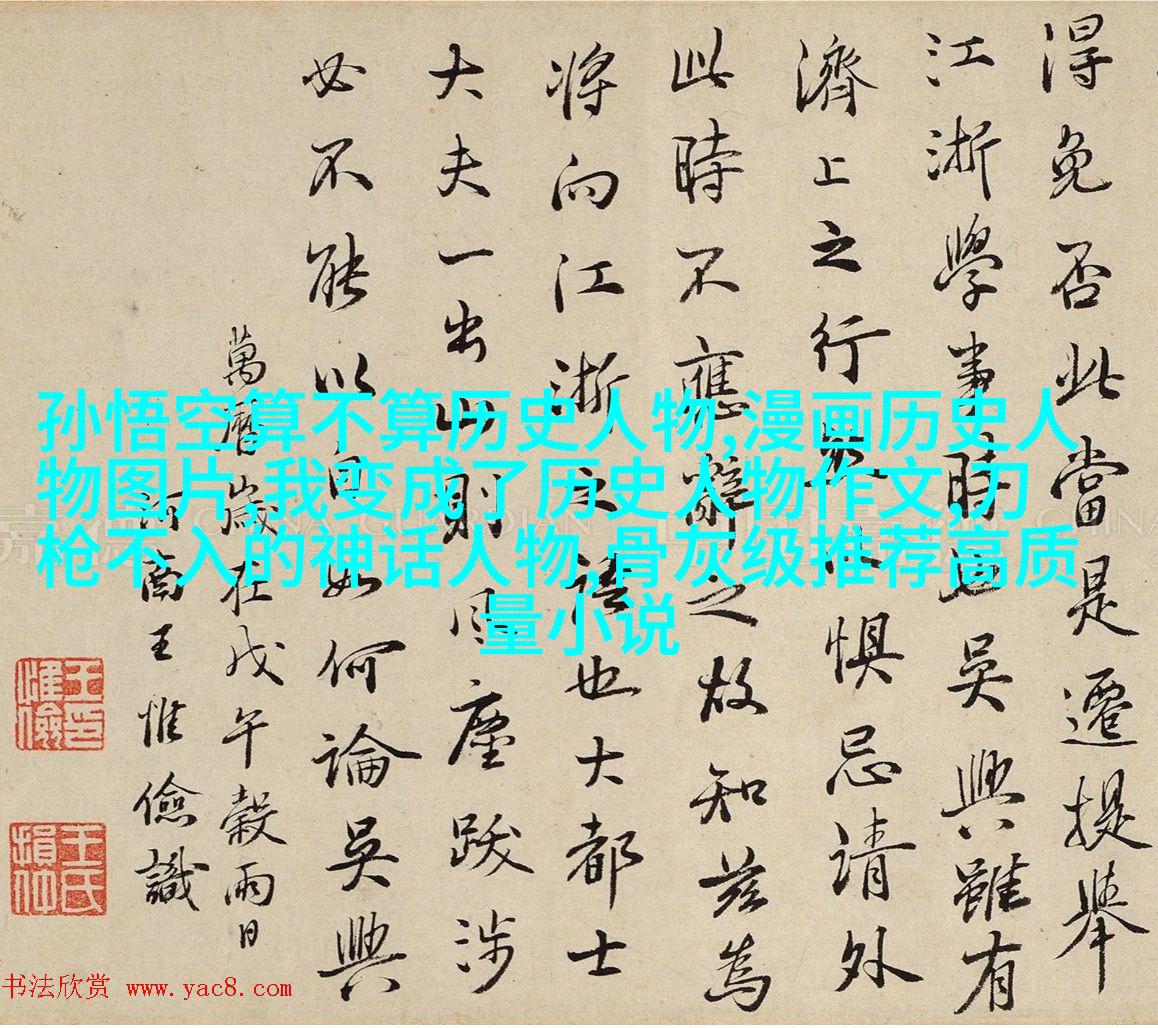 得免否此當是遷提舉
江浙學事時也吳興雖有
濟上之行懼忌請外
此時不應辭之故知茲為
將向江浙之語也大都士
大夫一出山則風塵跋涉
必不能以自如何論吳興
萬曆歲在戊午穀雨日
河南王惟儉識
王印惟儉
王氏損仲
孙悟空算不算历史人物,漫画历史人
物图片,我变成了历史人物作文,刀
枪不入的神话人物,骨灰级推荐高质
量小说
书法欣赏 www.yac8.com